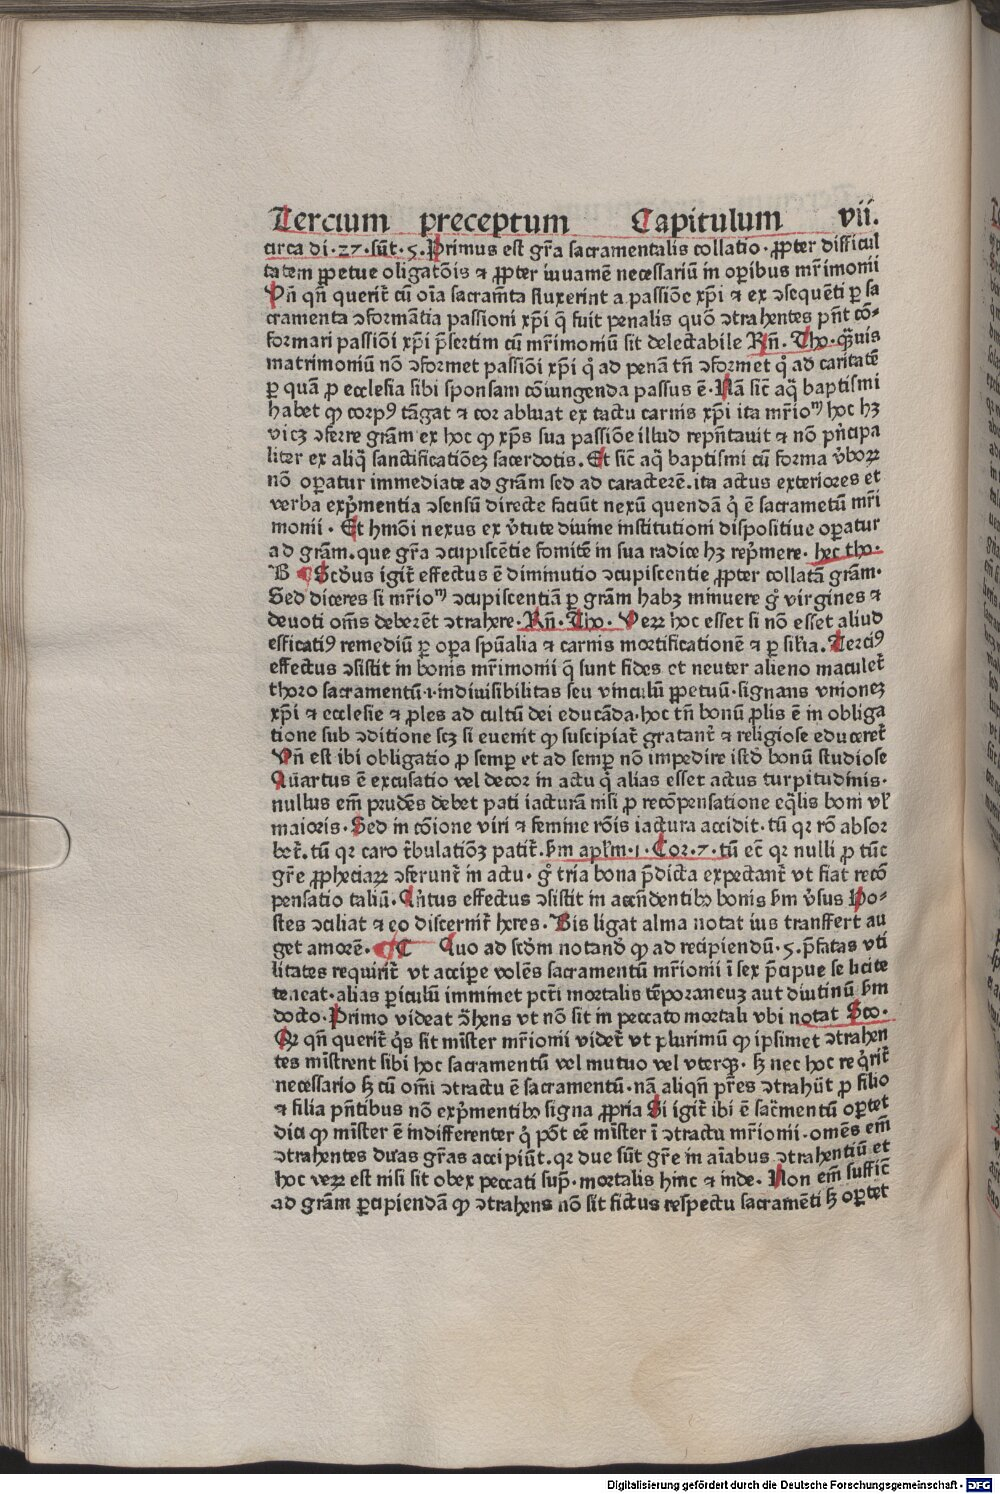 Tercium preceptum Capitulum vii.
circa di·27·sūt·5·Primus est gr̄a sacramentalis collatio·ꝓpter difficul
tatem ꝑpetue oligatōis ⁊ ꝓpter iuuamē necessariū in oꝑibus mr̄imonii
Vn̄ qn̄ querit᷑ cū oı̄a sacram̄ta fluxerint a passiōe xp̄i ⁊ ex ↄsequēti ꝑ sa
cramenta ↄformātia passioni xp̄i q̄ fuit penalis quō ↄtrahentes pn̄t cō-
formari passiōi xp̄i p̄sertim cū mr̄imoniū sit delectabile Rn̄. Tho·qᷓuis
matrimoniū nō ↄformet passiōi xp̄i qͦ ad penā tn̄ ↄformet qͦ ad caritatē
ꝑ quā ꝓ ecclesia sibi sponsam cōiungenda passus ē·Nā sic̄ aq̄ baptismi
habet ꝙ corpꝰ tāgat ⁊ cor abluat ex tactu carnis xp̄i ita mr̄ioᷠ hoc hꝫ
vicꝫ ↄferre grām ex hoc ꝙ xp̄s sua passiōe illud repn̄tauit ⁊ nō pn̄cipa
liter ex aliq̄ sanctificatiōeꝫ sacerdotis. Et sic̄ aq̄ baptismi cū forma v̄boꝝ
nō oꝑatur immediate ad grām sed ad caracterē·ita actus exteriores et
verba exp̄mentia ↄsensū directe faciūt nexū quendā qͥ ē sacrametū mr̄i
monii · Et hmōi nexus ex v̄tute diuine institutioni dispositiue oꝑatur
ad grām·que gr̄a ↄcupiscētie fomitē in sua radice hꝫ rep̄mere· hec tho·
B ¶ Scd̄us igit᷑ effectus ē diminutio ↄcupiscentie ꝓpter collatā grām·
Sed diceres si mr̄ioᷠ ↄcupiscentiā ꝑ grām habꝫ minuere gͦ virgines ⁊
deuoti om̄s deberēt ↄtrahere·Rn̄·Tho· Veꝝ hoc esset si nō esset aliud
efficatiꝰ remediū ꝑ oꝑa spūalia ⁊ carnis mortificationē ⁊ ꝑ sil̄ia. Terciꝰ
effectus ↄsistit in bonis mr̄imonii q̄ sunt fides et neuter alieno maculet᷑
thoro sacramentū·ı·indiuisibilitas seu vinculū ꝑpetuū·signans vnioneꝫ
xp̄i ⁊ ecclesie ⁊ ꝓles ad cultū dei educāda·hoc tn̄ bonū ꝓlis ē in obliga
tione sub ↄditione scꝫ si euenit ꝙ suscipiat᷑ gratant᷑ ⁊ religiose educeret᷑
Vn̄ est ibi obligatio ꝓ semꝑ et ad semꝑ nō impedire istd̄ bonū studiose
Quartus ē excusatio vel decor in actu q̄ alias esset actus turpitudinis·
nullus em̄ prudēs debet pati iacturā nisi ꝓ recōpensatione eq̄lis boni vl̄
maioris·Sed in cōione viri ⁊ femine rōis iactura accidit·tū qꝛ rō absor
bet᷑·tū qꝛ caro tͥbulatiōꝫ patit᷑·ẜm apl̄m·ı·Cor·7·tū ec̄ qꝛ nulli ꝓ tūc
gr̄e ꝓpheciaꝝ ↄferunt᷑ in actu· gͦ tria bona p̄dicta expectant᷑ vt fiat recō
pensatio taliū·Qn̄tus effectus ↄsistit in accn̄dentibꝯ bonis ẜm v̄sus Ho-
stes ↄciliat ⁊ eo discernit᷑ heres· Bis ligat alma notat ius transffert au
get amorē· ¶C Quo ad scd̄m notand̄ ꝙ ad recipiendū·5·p̄fatas vti
litates requirit᷑ vt accipe volēs sacramentū mr̄ionii ī sex p̄cipue se licite
teneat·alias ꝑiculū imminet pct̄i mortalis tēporaneuꝫ aut diutinū ẜm
docto·Primo videat ↄ̄hens vt nō sit in peccato mortali vbi notat Sco·
Qꝛ qn̄ querit᷑ qͥs sit mīster mr̄ionii videt᷑ vt plurimū ꝙ ipsimet ↄtrahen
tes mīstrent sibi hoc sacramentū vel mutuo vel vterqꝫ· sꝫ nec hoc reqͥrit᷑
necessario sꝫ cū om̄i ↄtractu ē sacramentū·nā aliqn̄ pr̄es ↄtrahūt ꝓ filio
⁊ filia pn̄tibus nō exp̄mentibꝯ signa ꝓpria Si igit᷑ ibi ē sac̄mentū oꝑtet
dici ꝙ mīster ē indifferenter qͥ pōt eē mīster ī ↄtractu mr̄ionii·omēs em̄
ↄtrahentes duas gr̄as accipiūt·qꝛ due sūt gr̄e in aı̄abus ↄtrahentiū et
hoc veꝝ est nisi sit obex peccati sup̄·mortalis hinc ⁊ inde· Non em̄ suffic̄
ad grām ꝑcipiendā ꝙ ↄtrahens nō sit fictus respectu sacramēti sꝫ oꝑtet
Digitalisierung gefördert durch die Deutsche Forschungsgemeinschaft - DFG